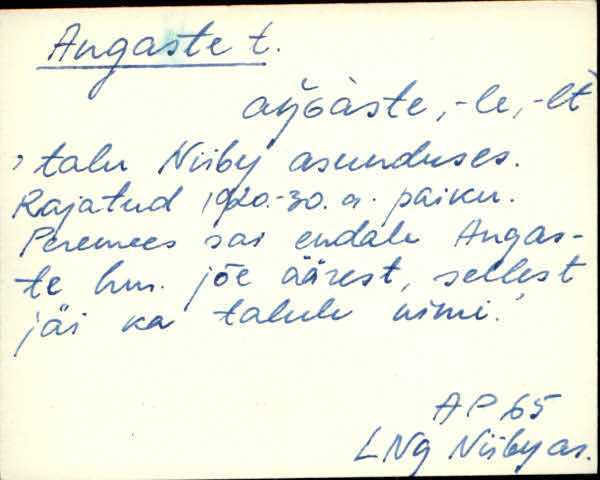 Angaste t.
aŋGàste, -le, -lt
, talu Niiby asunduses.
Rajatud 1920.-30. a. paiku.
Peremees sai endale Angas-
te hm. jõe äärest, sellest
jäi ka talule nimi.'
AP 65
LNg Niiby as.